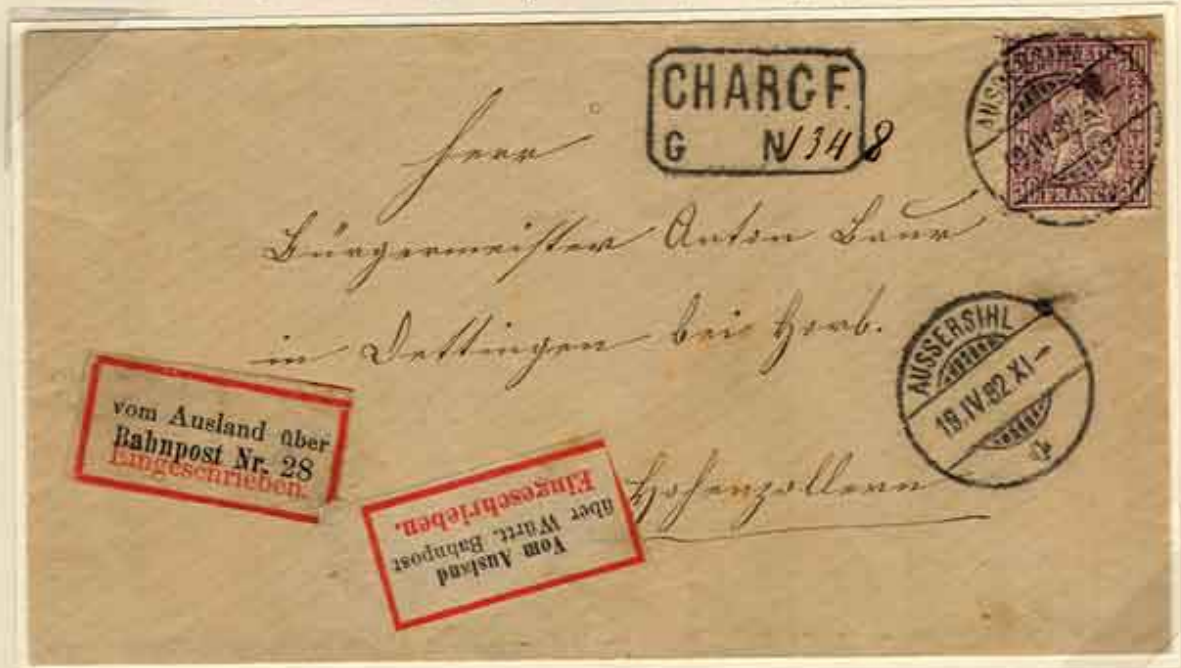 CHARGE
G N 1348
50 50
FRANCO
Herr
Bürgermeister Anton Baur
in Dettingen bei Horb.
Hohenzollern
AUSSERSIHL
19.IV.82 XI-
AUSSERSIHL
19.IV.82 XI-
vom Ausland über
Bahnpost Nr. 28
Eingeschrieben.
Vom Ausland
über Württ. Bahnpost
Eingeschrieben.